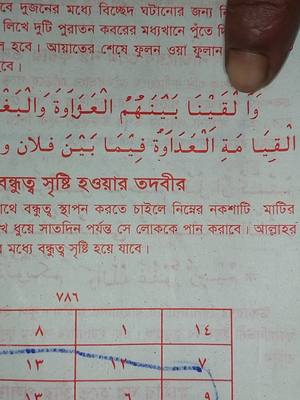 বে দুজনের মধ্যে বিচ্ছেদ ঘটানোর জন্য
লিখে দুটি পুরাতন কবরের মধ্যখানে পুঁতে
হবে। আয়াতের শেষে ফুলন ওয়া ফুলান
বে।
وَاَ لْقَيْنَا بَيْنَهُمُ الْعَدَاوَةَ وَالْبَغْ
الْقِيَا مَةِ اَلْعَدَاوَةُ فِيْمَا بَيْنَ فلان و
বন্ধুত্ব সৃষ্টি হওয়ার তদবীর
াথে বন্ধুত্ব স্থাপন করতে চাইলে নিম্নের নকশাটি মাটির
ধুয়ে সাতদিন পর্যন্ত সে লোককে পান করাবে। আল্লাহর
মধ্যে বন্ধুত্ব সৃষ্টি হয়ে যাবে।
٧٨٦
٨ ١ ١٤
١٣ ١٢ ٧
٦ ٩